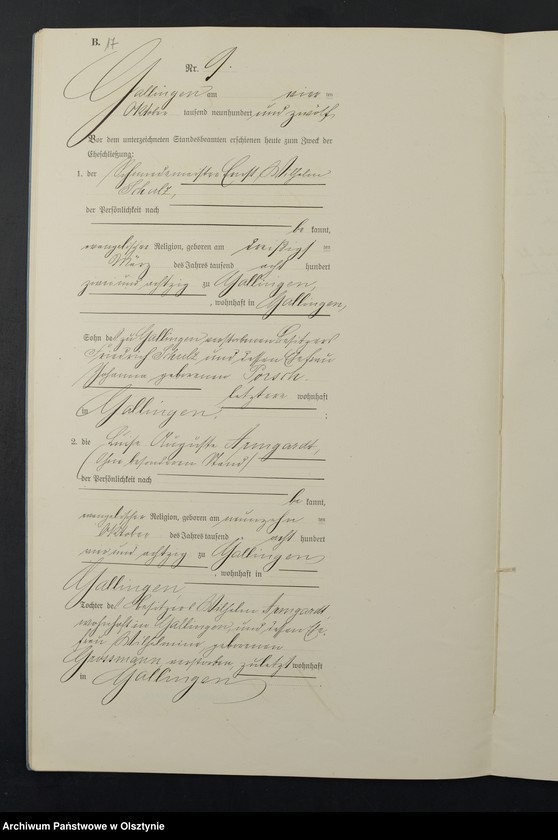 B. 17
Nr. 9.
Gallingen am vier ten
Oktober tausend neunhundert und zwölf
Vor dem unterzeichneten Standesbeamten erschienen heute zum Zweck der
Eheschließung:
1. der Schmiedemeister Ernst Wilhelm
Schulz,
der Persönlichkeit nach
be kannt,
evangelischer Religion, geboren am dreißigsten
März des Jahres tausend acht hundert
zwei und achtzig zu Gallingen,
, wohnhaft in Gallingen,
Sohn des zu Gallingen verstorbenen Besitzers
Friedrich Schulz und dessen Ehefrau
Johanna geborenen Porsch.
letztere wohnhaft
in Gallingen. ;
2. die Luise Auguste Armgardt,
(ohne besonderen Stand)
der Persönlichkeit nach
be kannt,
evangelischer Religion, geboren am neunzehn ten
Oktober des Jahres tausend acht hundert
vier und achtzig zu Gallingen
, wohnhaft in
Gallingen
Tochter des Besitzers Wilhelm Armgardt
wohnhaft in Gallingen, und dessen Ehe-
frau Wilhelmine geborenen
Grossmann verstorben, zuletzt wohnhaft
in Gallingen
Archiwum Państwowe w Olsztynie